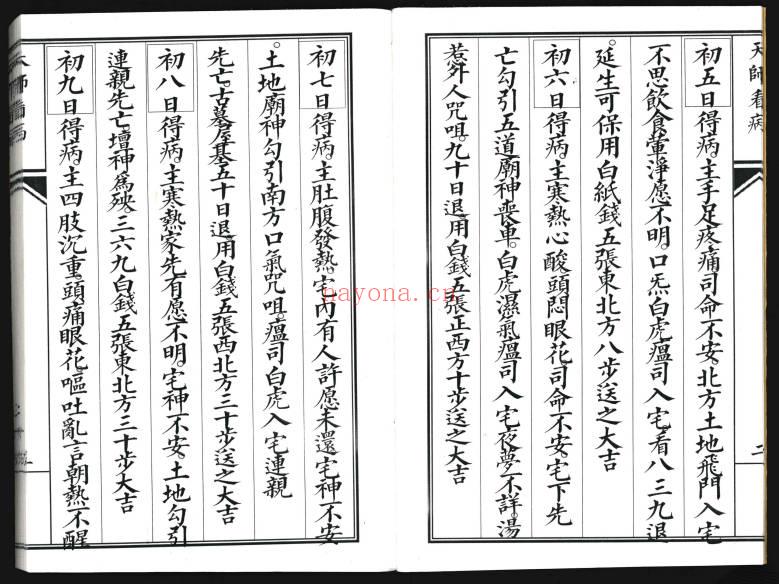 天師看病
初五日得病。主手足疼痛司命不安。北方土地飛門入宅
不思飲食葷淨愿不明。口炁白虎瘟司入宅看八三九退
延生可保用白紙錢五張東北方八步送之大吉
初六日得病。主寒熱心酸頭悶眼花司命不安。宅下先
亡勾引五道廟神喪車。白虎濕氣瘟司入宅夜夢不詳。湯
惹外人咒咀。九十日退用白錢五張正西方十步送之大吉
二
初七日得病。主肚腹發熱。宅內有人許愿未還宅神不安
。土地廟神勾引南方口氣咒咀。瘟司白虎入宅連親
先亡。古墓屋基五十日退。用白錢五張西北方三十步送之大吉
初八日得病。主寒熱家先有愿不明。宅神不安。土地勾引
連親先亡壇神為殃。三六九白錢五張東北方三十步大吉
初九日得病。主四肢沉重。頭痛眼花嘔吐亂言朝熱不醒
天師看病
nayona.cn